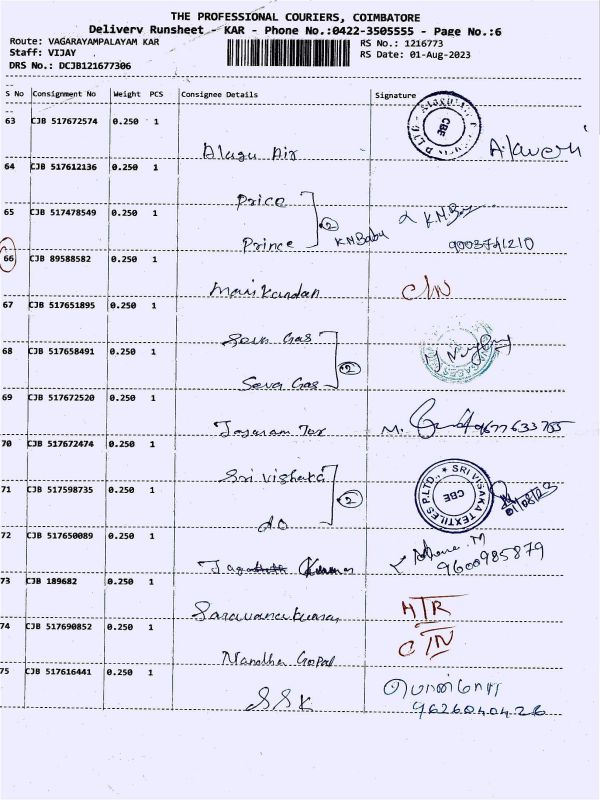 THE PROFESSIONAL COURIERS, COIMBATORE
Delivery Runsheet - KAR - Phone No.:0422-3505555 - Page No.:6
Route: VAGARAYAMPALAYAM KAR
RS No.: 1216773
Staff: VIJAY
RS Date: 01-Aug-2023
DRS No.: DCJB121677306
S No Consignment No Weight PCS Consignee Details Signature
63 CJB 517672574 0.250 1
CBE
Alagu Air
64 CJB 517612136 0.250 1
Price
65 CJB 517478549 0.250 1
2 K.N.Babu
Prince
9003741210
66 CJB 89588582 0.250 1
Manikandan
C/N
67 CJB 517651895 0.250 1
Seva Gas
68 CJB 517658491 0.250 1
2
Seva Gas
69 CJB 517672520 0.250 1
Jayaram Tex M. 9677633755
70 CJB 517672474 0.250 1
Sri Vishaka
71 CJB 517598735 0.250 1
2
SRI VISAKA TEXTILES P.LTD., CBE
01/08/23
do
72 CJB 517650089 0.250 1
Kumar
9600985879
73 CJB 189682 0.250 1
Saravanakumar
HTR
74 CJB 517690852 0.250 1
C/N
Nandha Gopal
75 CJB 517616441 0.250 1
SSK
9626040426